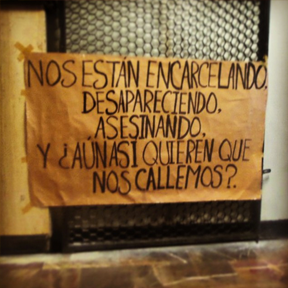 NOS ESTÁN ENCARCELANDO,
DESAPARECIENDO,
ASESINANDO,
Y ¿AÚNASI QUIEREN QUE
NOS CALLEMOS?.